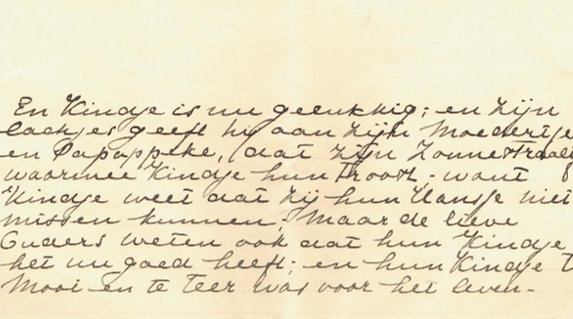 En Kindje is nu gelukkig; en zijn
lachjes geeft hij aan zijn Moedertje
en Papappeke, dat zijn Zonnestraal
waarmee Kindje hun troost; want
Kindje weet dat zij hun Hansje niet
missen kunnen. Maar de lieve
Ouders weten ook dat hun Kindje
het nu goed heeft; en hun Kindje
Mooi en te teer was voor het leven-